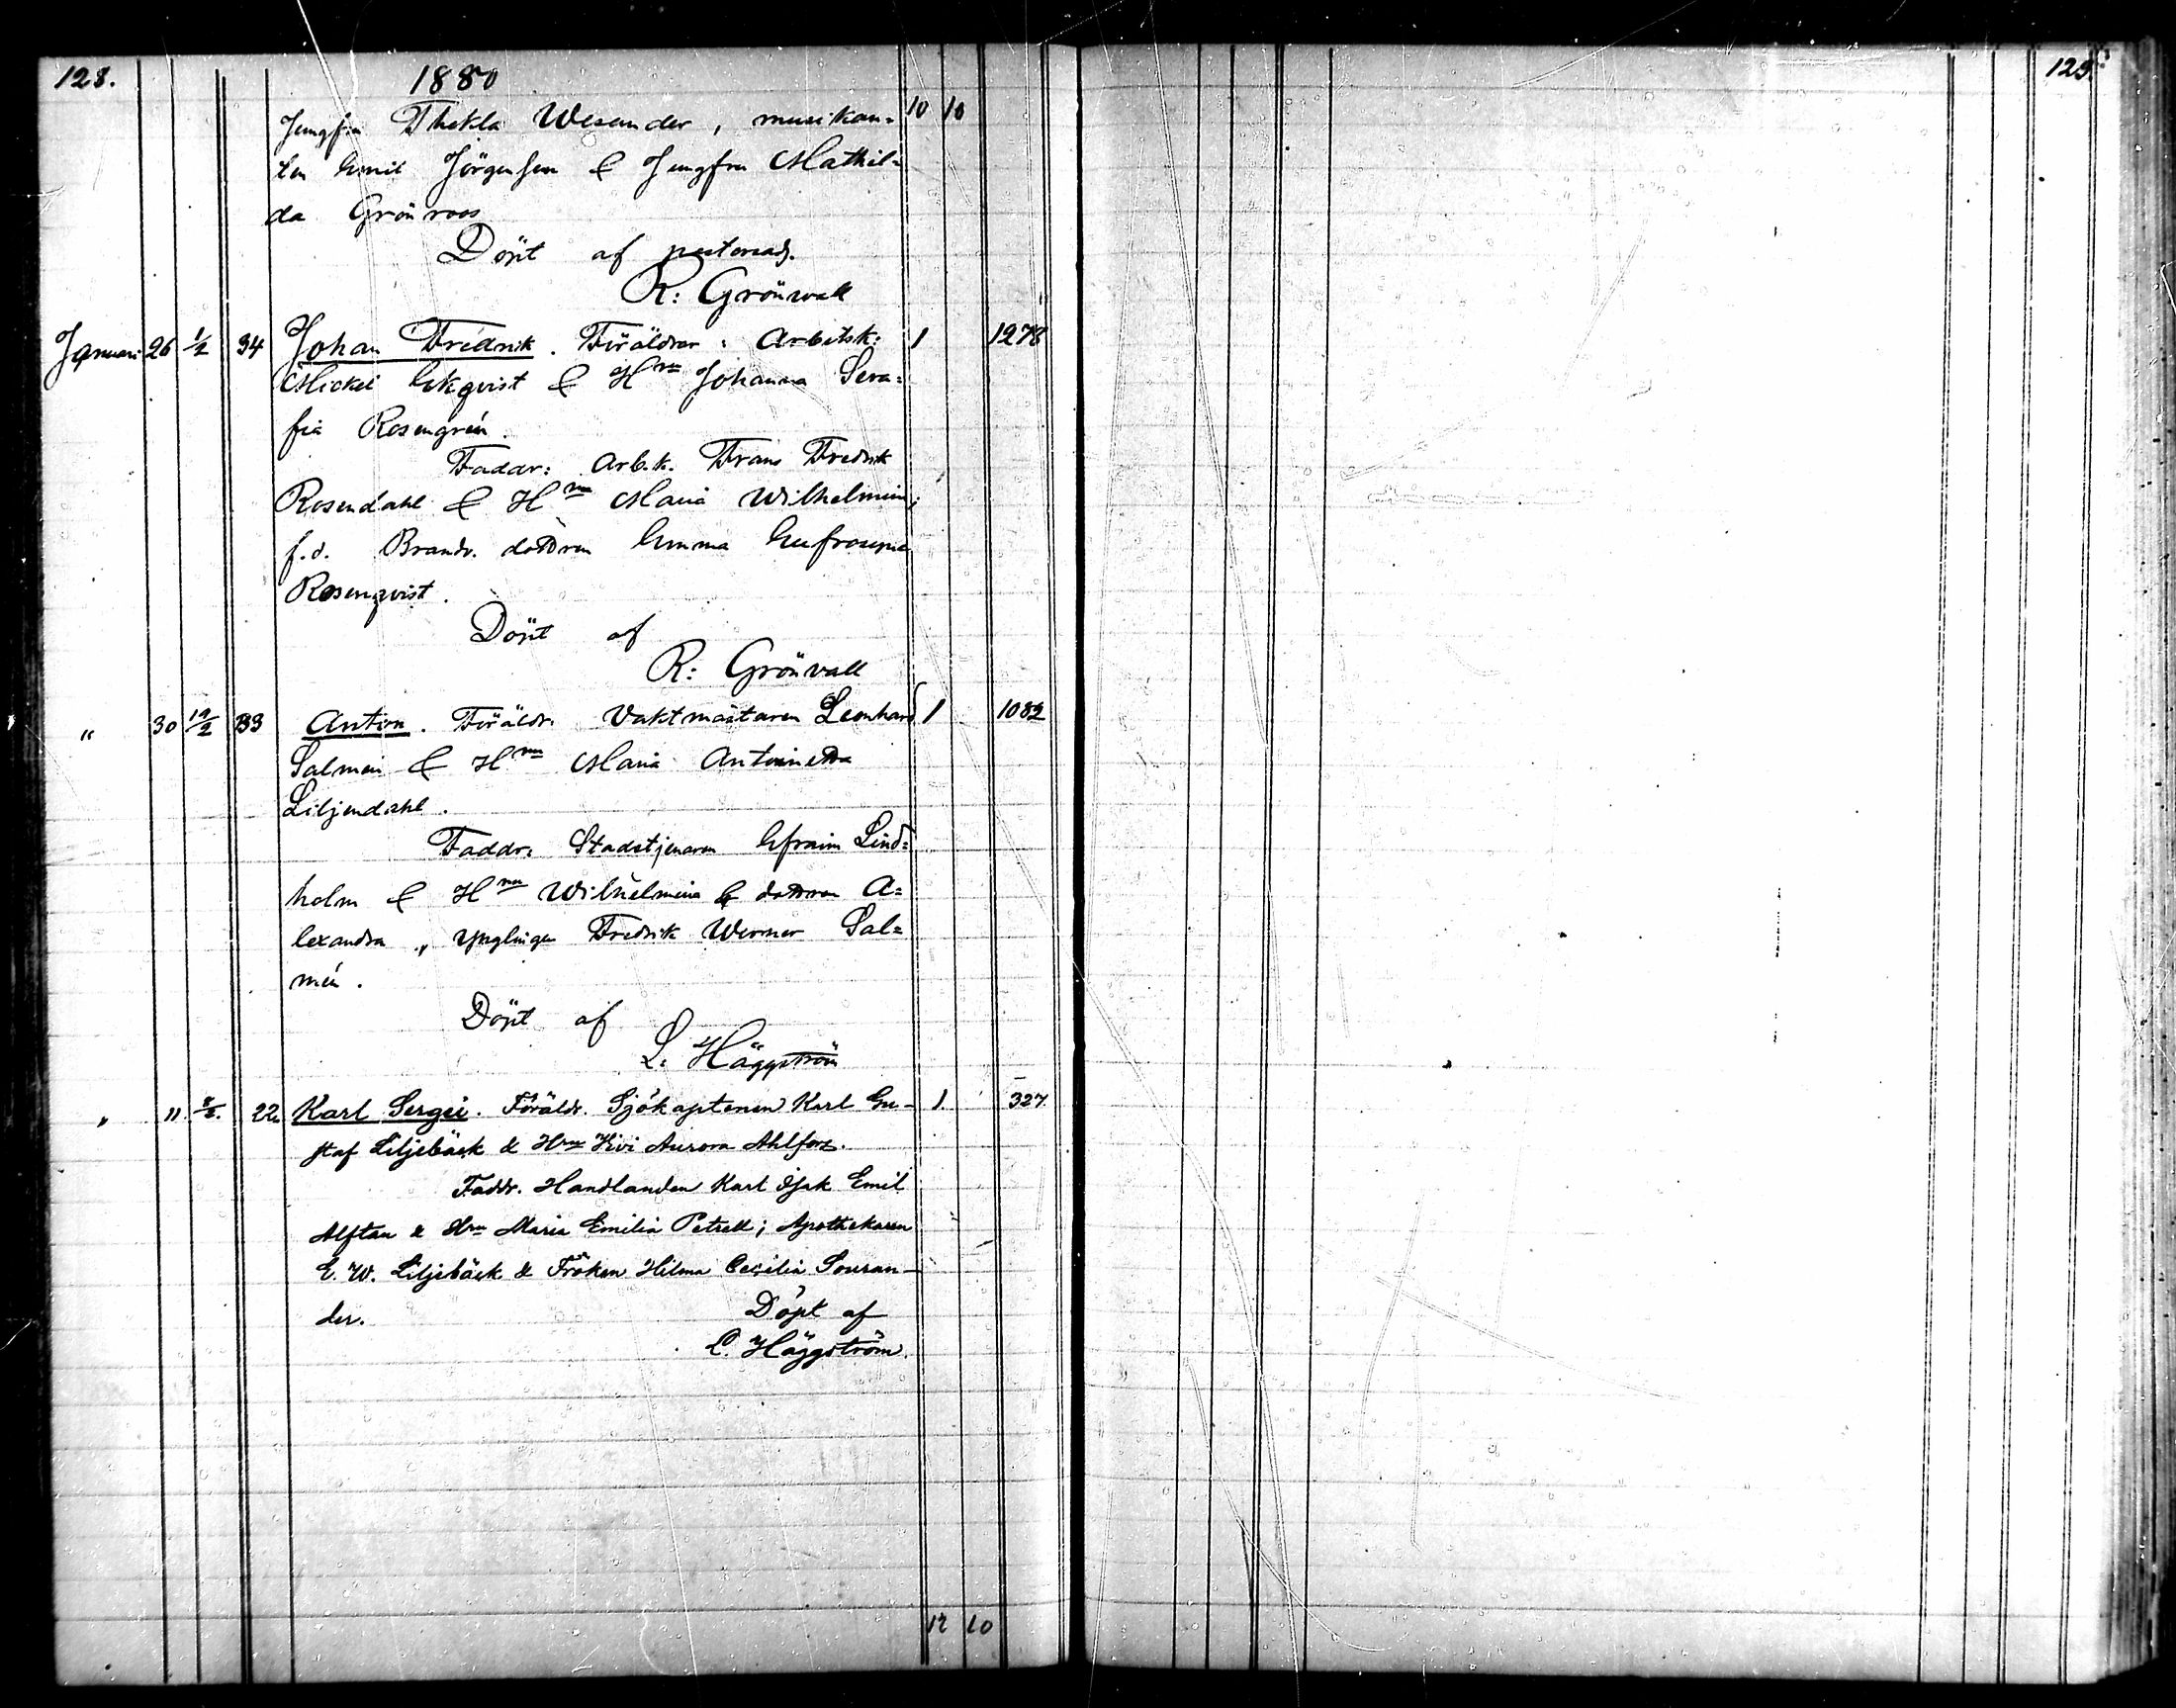 128. 1880 129.
Jungfru Thekla Wesander, musikan= 10 10
ten Emil Jörgensen & Jungfru Mathil=
da Grönroos
Döpt af pastorsadj.
R: Grönvall
Januari 26 1/2 34 Johan Fredrik. Föräldrar: Arbetsk: 1 1278
Mickel Ekqvist & H:ru Johanna Sera=
fia Rosengrén.
Faddr: Arb.k. Frans Fredrik
Rosendahl & H:ru Maria Wilhelmina;
f.d. Brandv. dottren Emma Eufrosyne
Rosenqvist.
Döpt af
R: Grönvall
" 30 19/2 33 Anton. Föräldr: Vaktmästaren Leonhard 1 1082
Salmén & H:ru Maria Antoinetta
Liljendahl.
Faddr: Stadstjenaren Efraim Lind=
holm & H:ru Wilhelmina & dottren A=
lexandra, Ynglingen Fredrik Werner Sal=
mén.
Döpt af
L. Häggström
" 11 8/2. 22 Karl Sergei. Föräldr. Sjökaptenen Karl Gu- 1. 327.
staf Liljebäck & Hru Hivi Aurora Ahlfors.
Faddr. Handlanden Karl Isak Emil
Alftan & Hru Maria Emilia Petrell; Apothekaren
E. W. Liljebäck & Fröken Hilma Cecilia Souran-
der. Döpt af
L. Häggström.
12 10